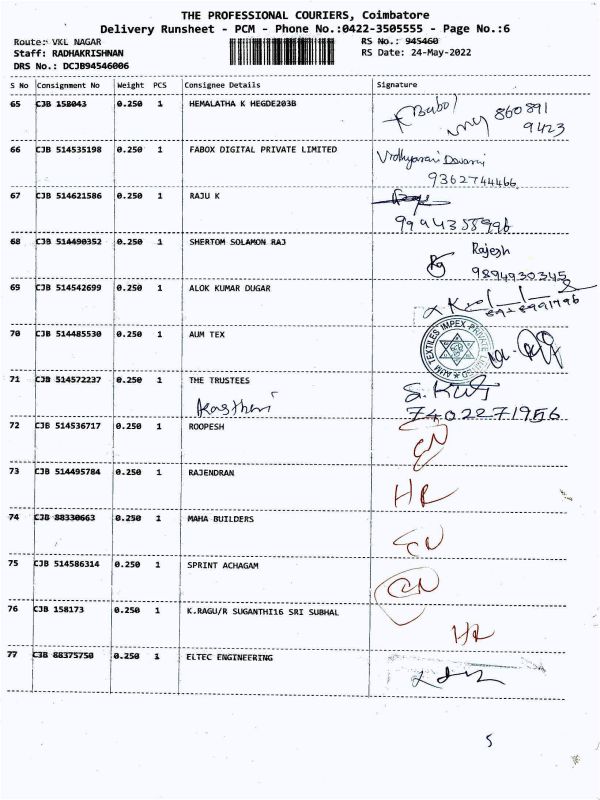 THE PROFESSIONAL COURIERS, Coimbatore
Delivery Runsheet - PCM - Phone No.:0422-3505555 - Page No.:6
Route:- VKL NAGAR RS No.: 945460
Staff: RADHAKRISHNAN RS Date: 24-May-2022
DRS No.: DCJB94546006
S No Consignment No Weight PCS Consignee Details Signature
65 CJB 158043 0.250 1 HEMALATHA K HEGDE203B
860891
9423
66 CJB 514535198 0.250 1 FABOX DIGITAL PRIVATE LIMITED
9362744466
67 CJB 514621586 0.250 1 RAJU K
68 CJB 514490352 0.250 1 SHERTOM SOLAMON RAJ Rajesh
9894930345
69 CJB 514542699 0.250 1 ALOK KUMAR DUGAR
70 CJB 514485530 0.250 1 AUM TEX
AUM TEXTILES IMPEX PRIVATE LIMITED
71 CJB 514572237 0.250 1 THE TRUSTEES
72 CJB 514536717 0.250 1 ROOPESH
73 CJB 514495784 0.250 1 RAJENDRAN
HR
74 CJB 88330663 0.250 1 MAHA BUILDERS
75 CJB 514586314 0.250 1 SPRINT ACHAGAM
76 CJB 158173 0.250 1 K.RAGU/R SUGANTHI16 SRI SUBHAL
HR
77 CJB 88375750 0.250 1 ELTEC ENGINEERING
5